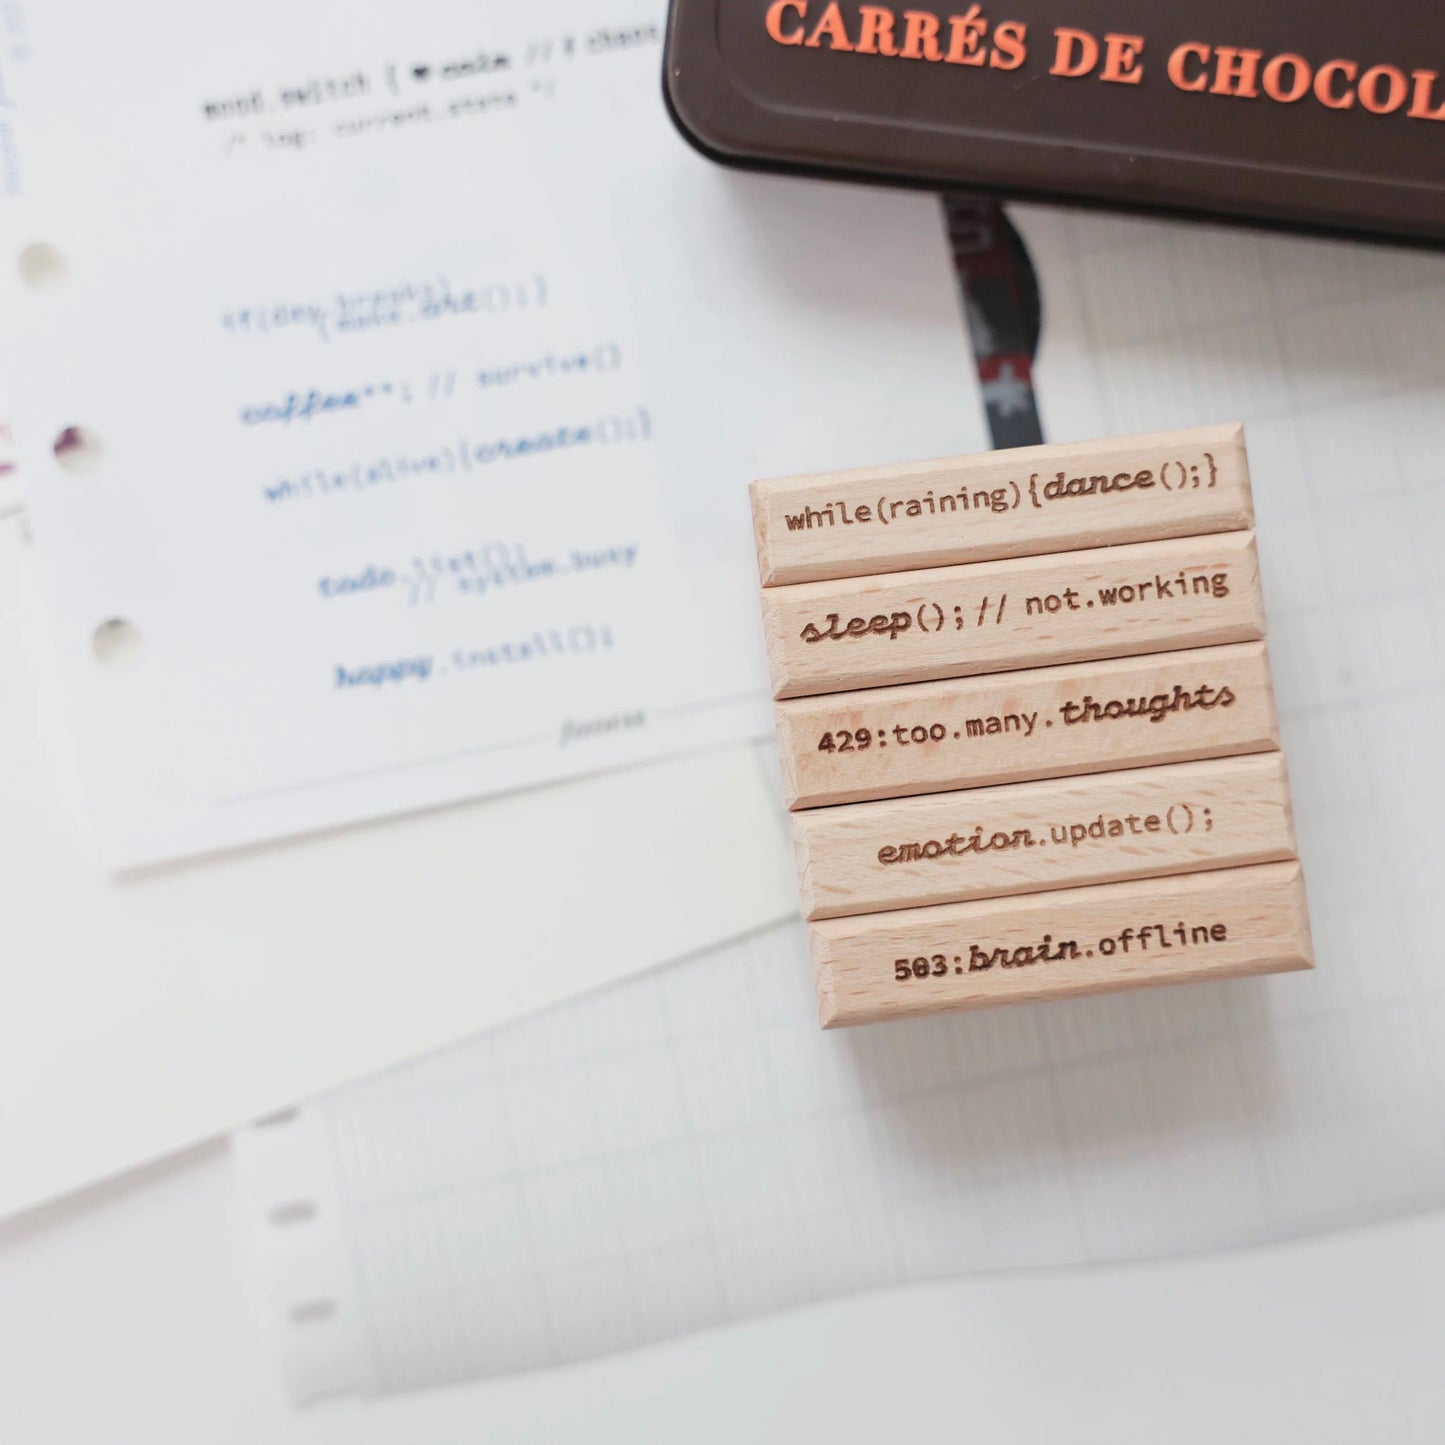 CARRÉS DE CHOCOL
mood.switch { ♥ calm // ! chaos
/* log: current.state */
if(day.breaks)
{make.art();}
coffee++; // survive()
while(alive){create();}
todo.list();
// system.busy
happy.install();
while(raining){dance();}
sleep();// not.working
429:too.many.thoughts
emotion.update();
503:brain.offline